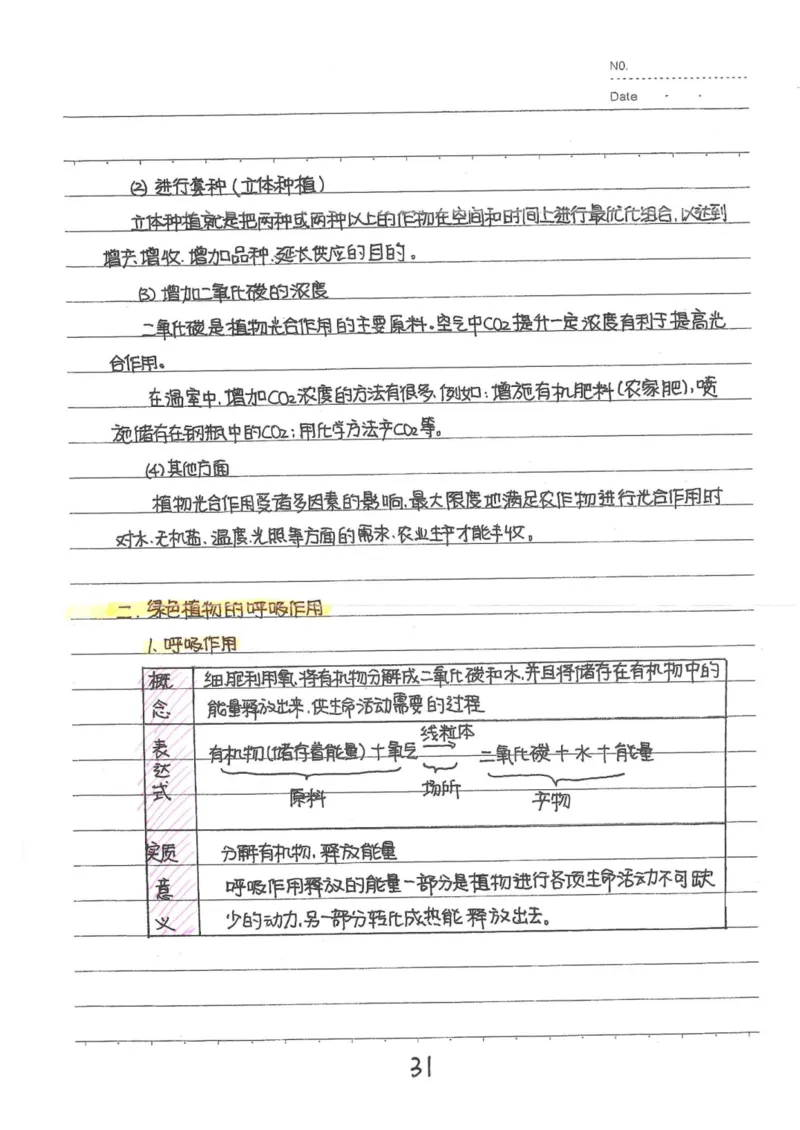 NO.
Date
(2) 进行套种(立体种植)
立体种植就是把两种或两种以上的作物在空间和时间上进行最优化组合,以达到
增产、增收、增加品种、延长供应的目的。
(3) 增加二氧化碳的浓度
二氧化碳是植物光合作用的主要原料。空气中CO2提升一定浓度有利于提高光
合作用。
在温室中,增加CO2浓度的方法有很多,例如:增施有机肥料(农家肥),喷
施储存在钢瓶中的CO2;用化学方法产CO2等。
(4)其他方面
植物光合作用受诸多因素的影响,最大限度地满足农作物进行光合作用时
对水、无机盐、温度、光照等方面的需求,农业生产才能丰收。
二、绿色植物的呼吸作用
1、呼吸作用
概念 细胞利用氧,将有机物分解成二氧化碳和水,并且将储存在有机物中的
能量释放出来,供生命活动需要的过程
表达式 有机物(储存着能量)+氧气 线粒体→ 二氧化碳+水+能量
原料 场所 产物
实质 分解有机物,释放能量
意义 呼吸作用释放的能量一部分是植物进行各项生命活动不可缺
少的动力,另一部分转化成热能释放出去。
31